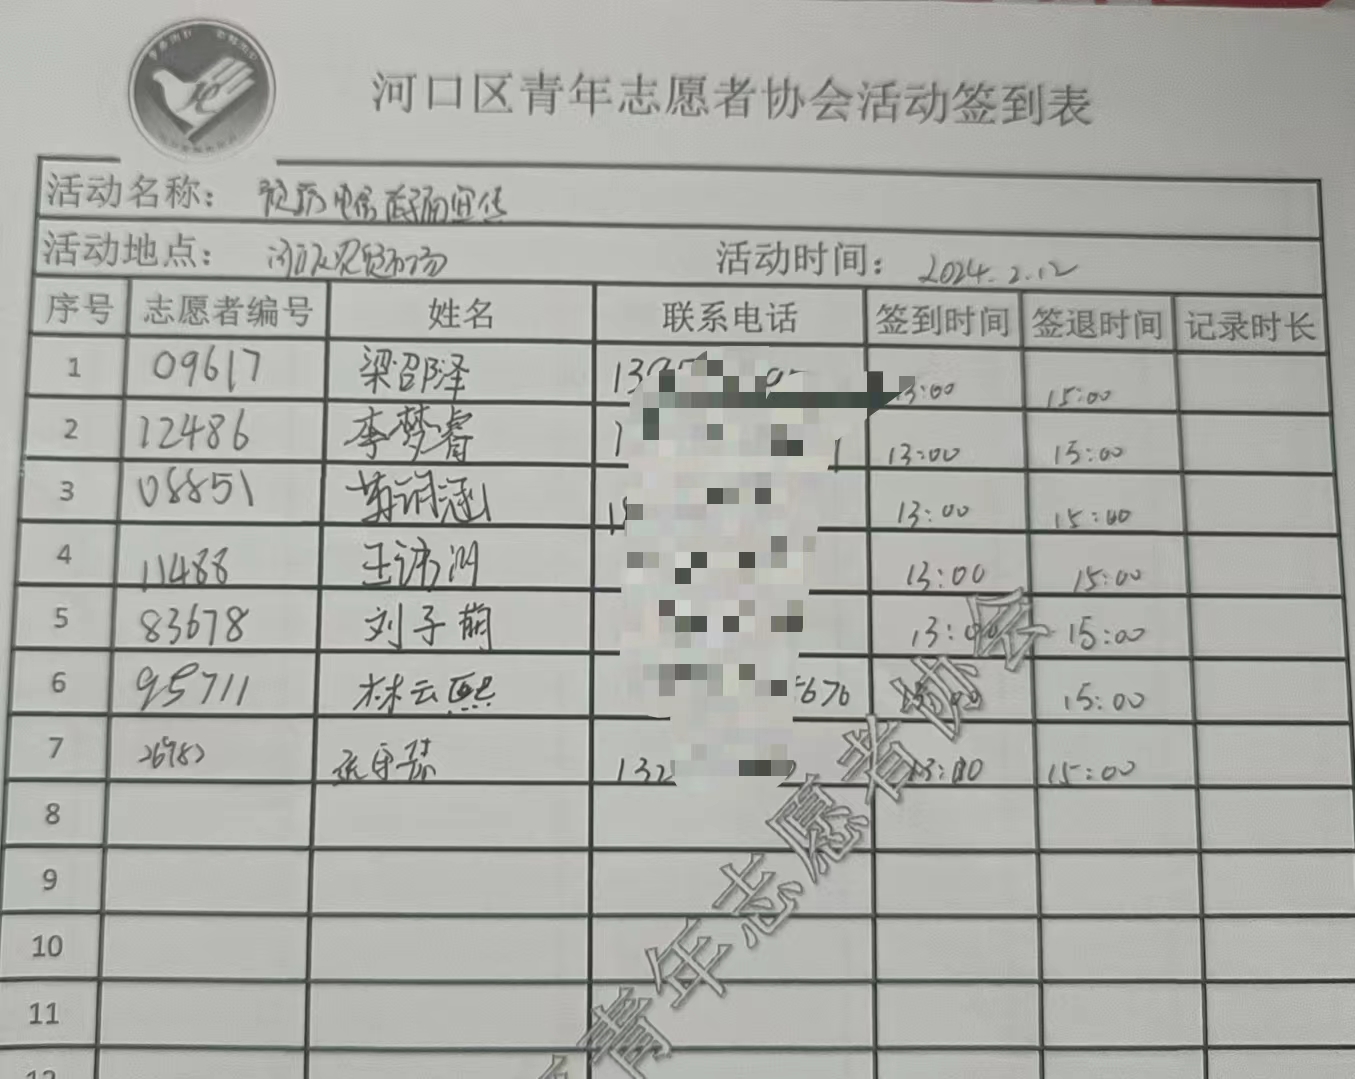 河口区青年志愿者协会活动签到表
活动名称： 宣传
活动地点： 活动时间：2024.2.12
序号 志愿者编号 姓名 联系电话 签到时间 签退时间 记录时长
1 09617 梁邵泽 13:00 15:00
2 12486 李梦睿 13:00 15:00
3 08851 涵 13:00 15:00
4 11488 王 13:00 15:00
5 83678 刘子萌 13:00 15:00
6 95711 林云熙 5670 15:00
7 132 13:00 15:00
8
9
10
11
12
青年志愿者协会